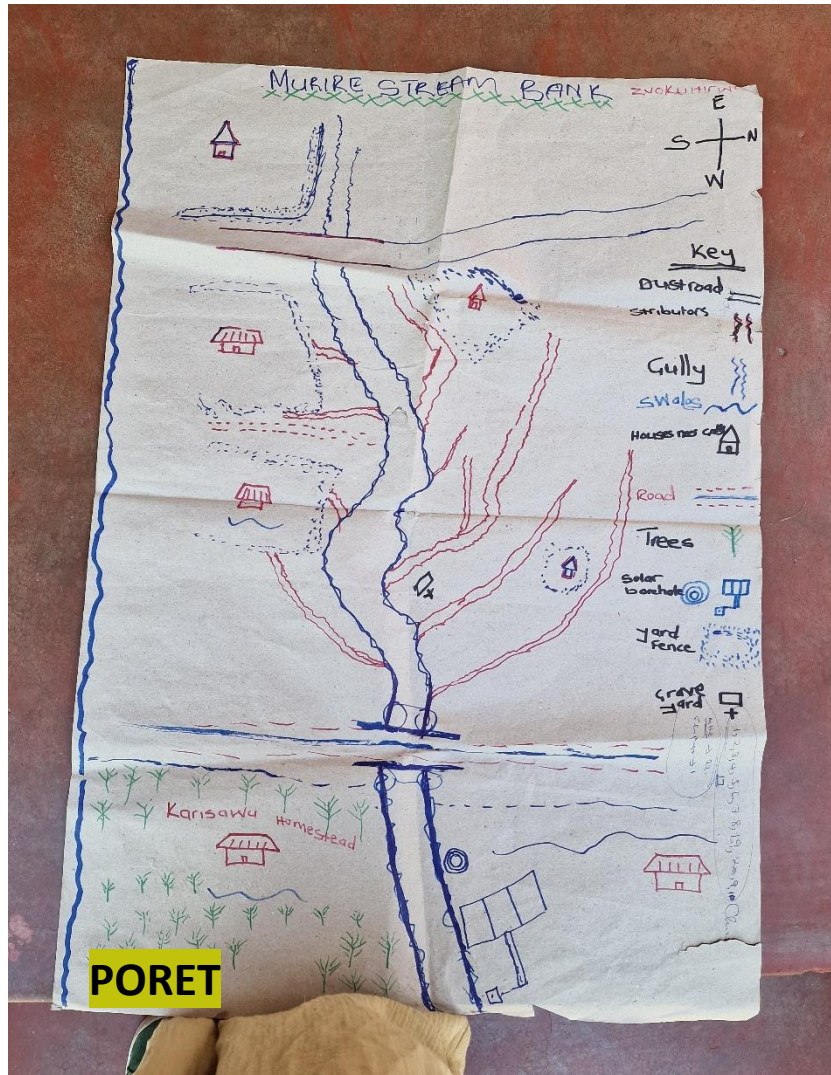 MURIRE STREAM BANK
E
S N
W
Key
Dustroad
stributors
Gully
Swales
Road
Trees
Solar
borehole
yard
Fence
Grave
yard
Karisawu Homestead
PORET